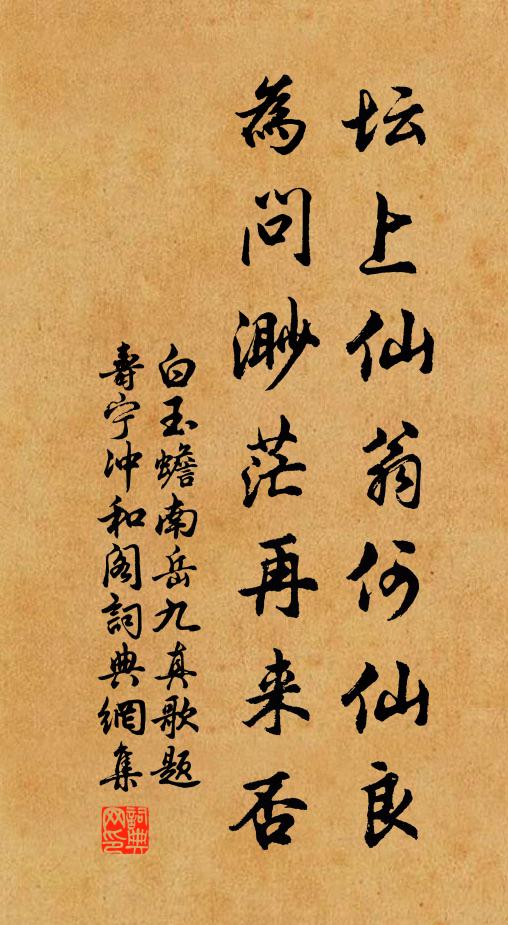 坛上仙翁何仙良
為问渺茫再来否
白玉蟾南岳九真歌题
寿宁冲和阁詞典網集
詞典网印